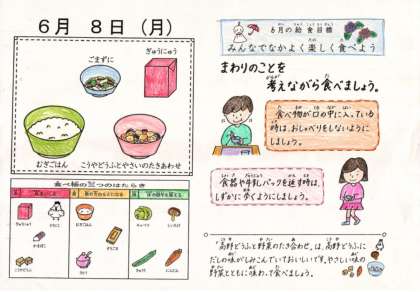 6月 8日(月)
ごまずに
ぎゅうにゅう
むぎごはん
こうやどうふとやさいのたきあわせ
食べ物の三つのはたらき
6月の給食目標
みんなでなかよく楽しく食べよう
まわりのことを
考えながら食べましょう。
食べ物が口の中に入っている
時は、おしゃべりをしないように
しましょう。
食器や牛乳パックを返す時は、
しずかに歩くようにしましょう。
「高野どうふと野菜のたき合わせ」は、高野どうふに
だしの味がしみこんでいておいしいです。やさしい味の
野菜とともに味わって食べましょう。